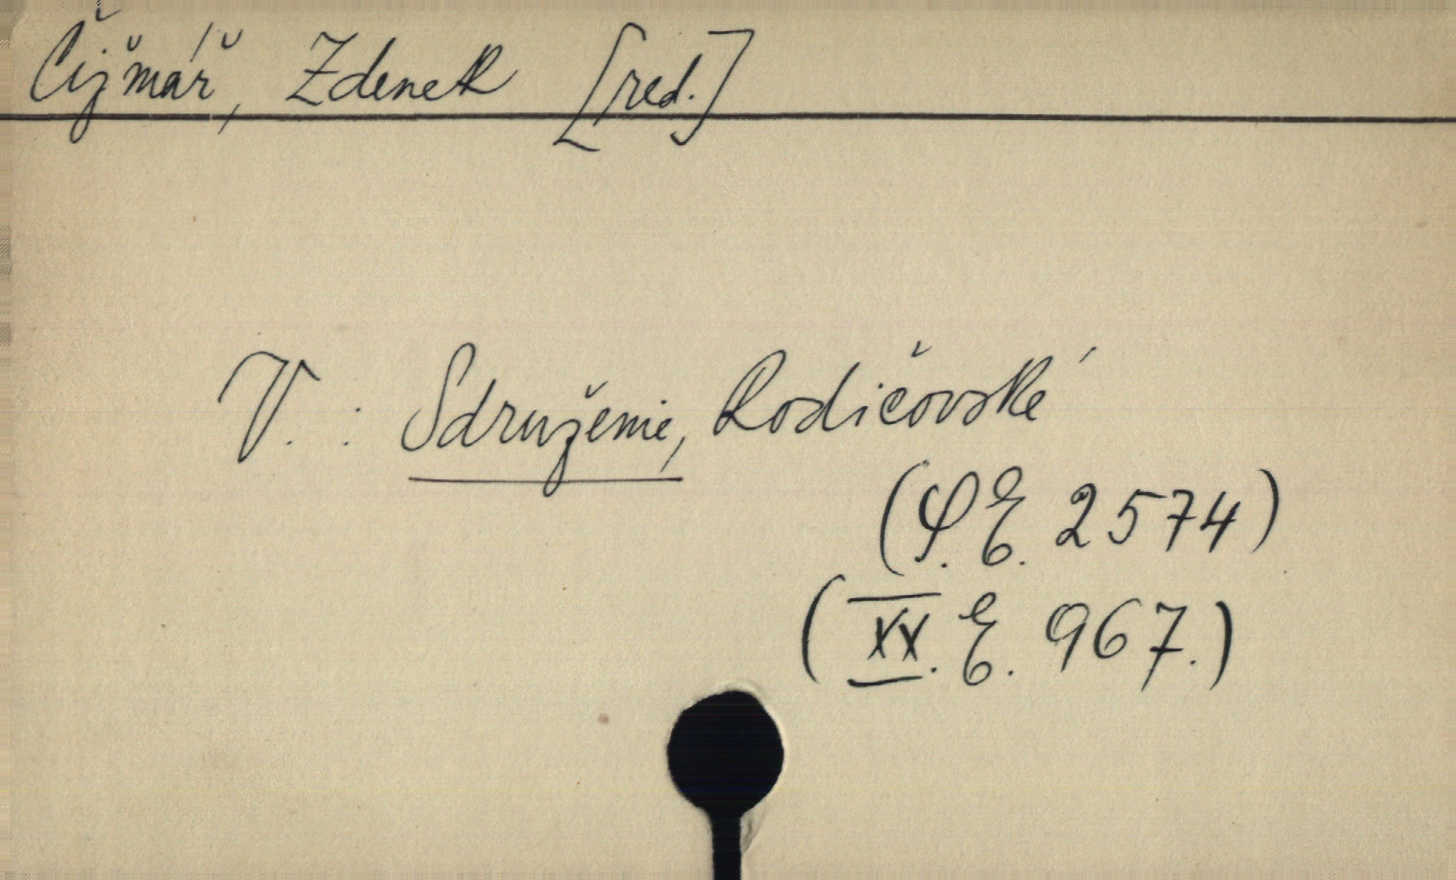 Čižmář, Zdenek [red.]
V.: Sdruženie, Rodičovské
(S.E. 2574)
(XX. E. 967.)